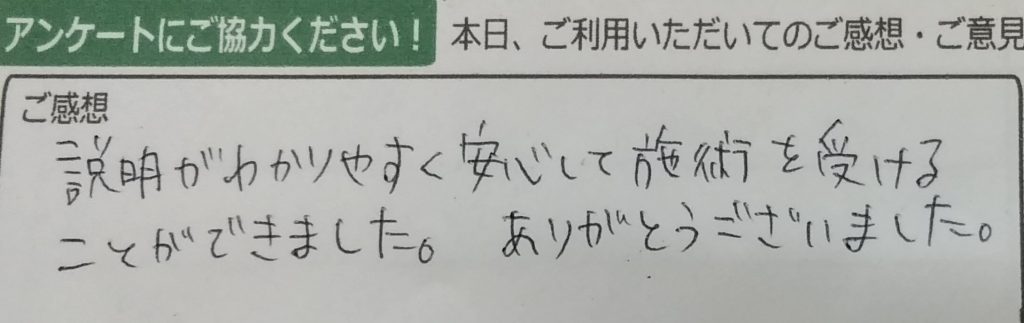 アンケートにご協力ください! 本日、ご利用いただいてのご感想・ご意見
ご感想
説明がわかりやすく安心して施術を受ける
ことができました。 ありがとうございました。